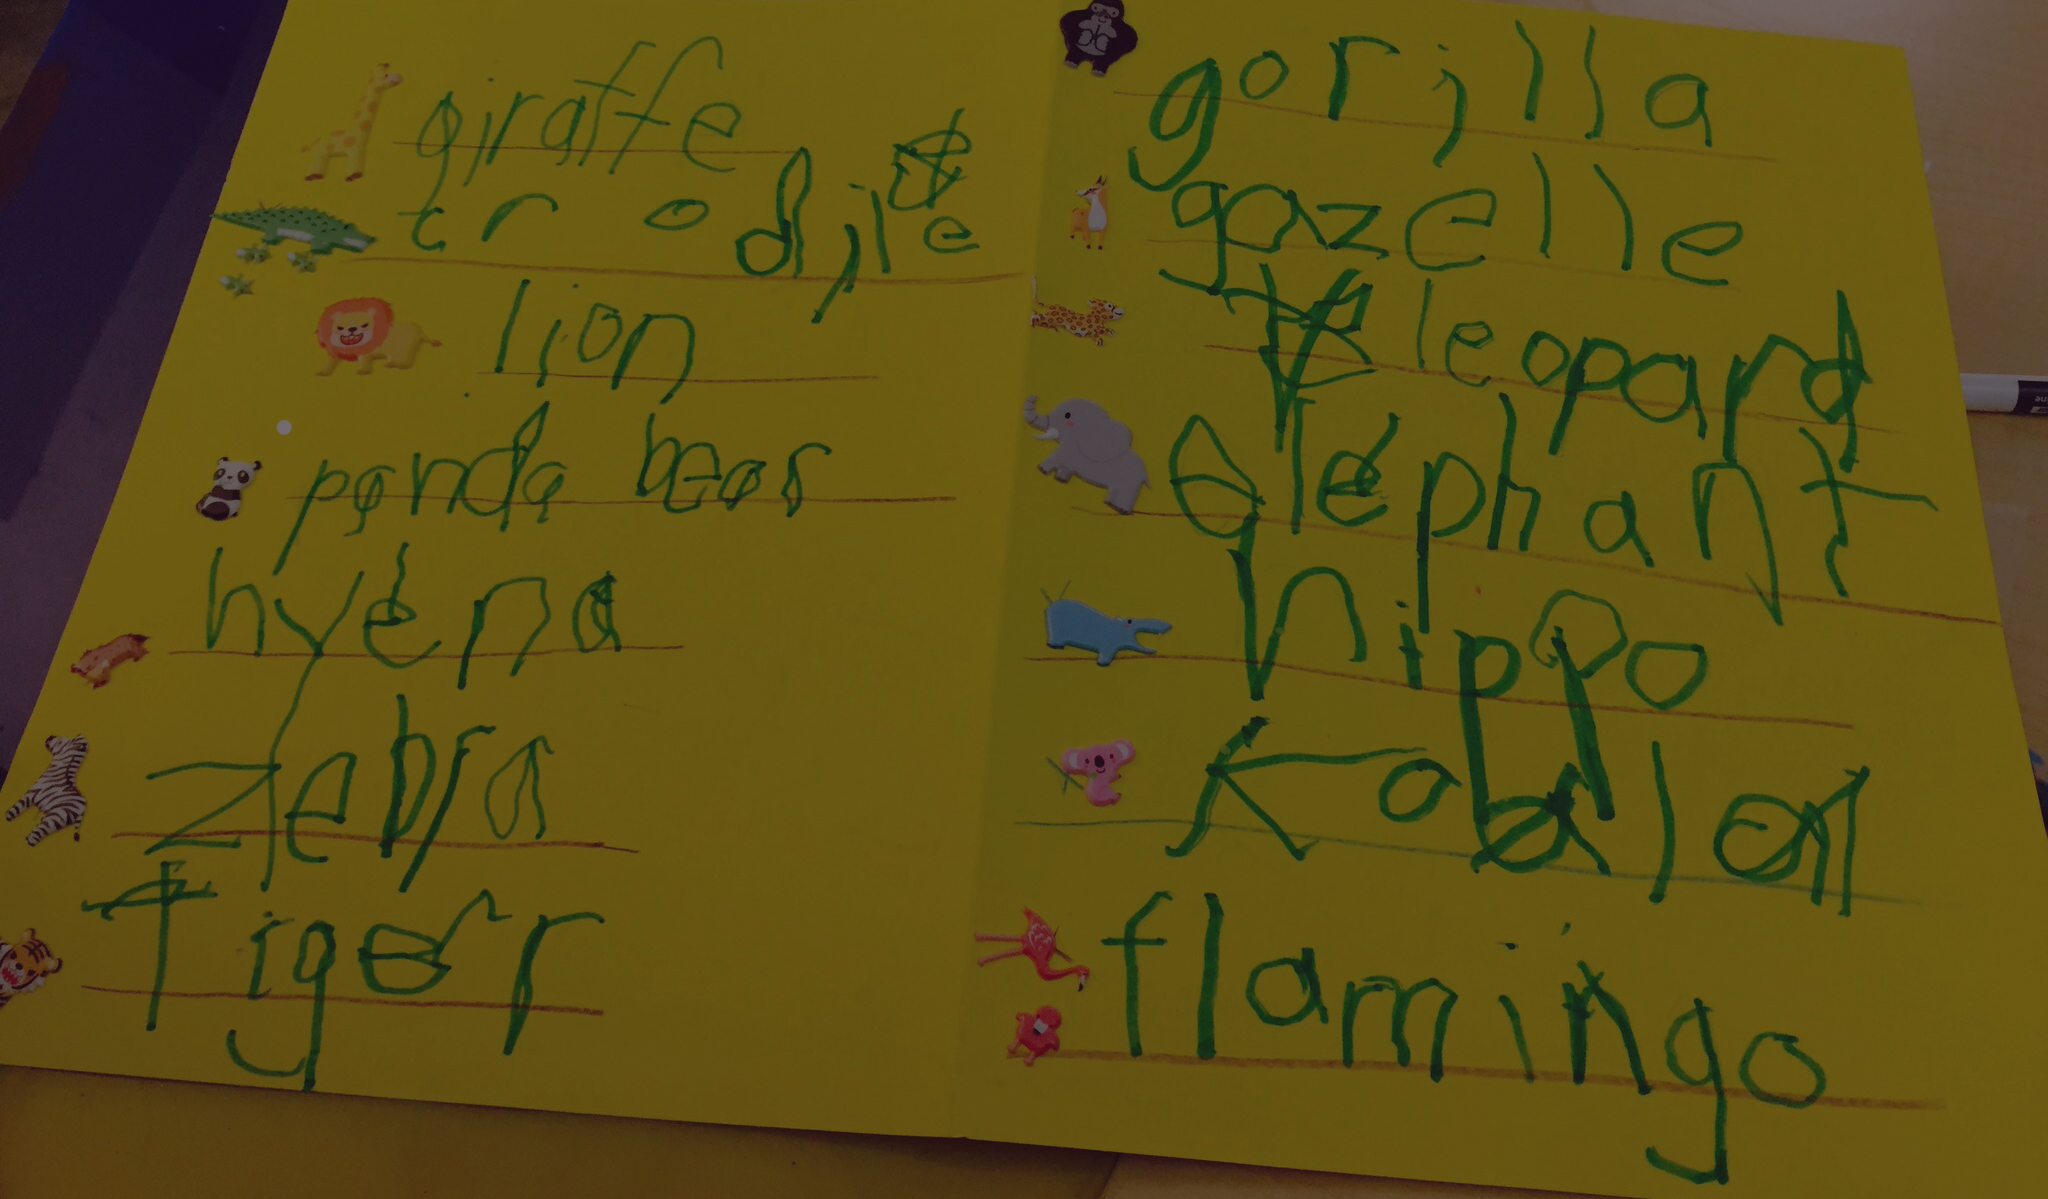 giraffe
crodile
lion
panda bear
hyena
zebra
tiger
gorilla
gazelle
leopard
elephant
hippo
koala
flamingo